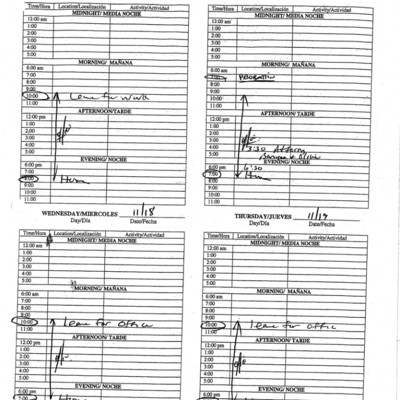 Time/Hora Location/Localización Activity/Actividad
MIDNIGHT/ MEDIA NOCHE
12:00 am
1:00
2:00
3:00
4:00
5:00
MORNING/ MAÑANA
6:00 am
7:00
8:00
9:00
10:00 Leave for Work
11:00
AFTERNOON/TARDE
12:00 pm
1:00
2:00
3:00
4:00
5:00
EVENING/ NOCHE
6:00 pm
7:00 Home
8:00
9:00
10:00
11:00
Time/Hora Location/Localización Activity/Actividad
MIDNIGHT/ MEDIA NOCHE
12:00 am
1:00
2:00
3:00
4:00
5:00
MORNING/ MAÑANA
6:00 am
7:00 PROBATION
8:00
9:00
10:00
11:00
AFTERNOON/TARDE
12:00 pm
1:00
2:00
3:00
4:00 3:30 Attorney
5:00
EVENING/NOCHE
6:00 pm 6:30
7:00 Home
8:00
9:00
10:00
11:00
WEDNESDAY/MIERCOLES 11/18
Day/Día Date/Fecha
THURSDAY/JUEVES 11/19
Day/Día Date/Fecha
Time/Hora Location/Localización Activity/Actividad
MIDNIGHT/ MEDIA NOCHE
12:00 am
1:00
2:00
3:00
4:00
5:00
MORNING/ MAÑANA
6:00 am
7:00
8:00
9:00
10:00 Leave for Office
11:00
AFTERNOON/ TARDE
12:00 pm
1:00
2:00
3:00
4:00
5:00
EVENING/ NOCHE
6:00 pm
7:00
Time/Hora Location/Localización Activity/Actividad
MIDNIGHT/ MEDIA NOCHE
12:00 am
1:00
2:00
3:00
4:00
5:00
MORNING/ MAÑANA
6:00 am
7:00
8:00
9:00
10:00 Leave for Office
11:00
AFTERNOON/ TARDE
12:00 pm
1:00
2:00
3:00
4:00
5:00
EVENING/ NOCHE
6:00 pm
7:00